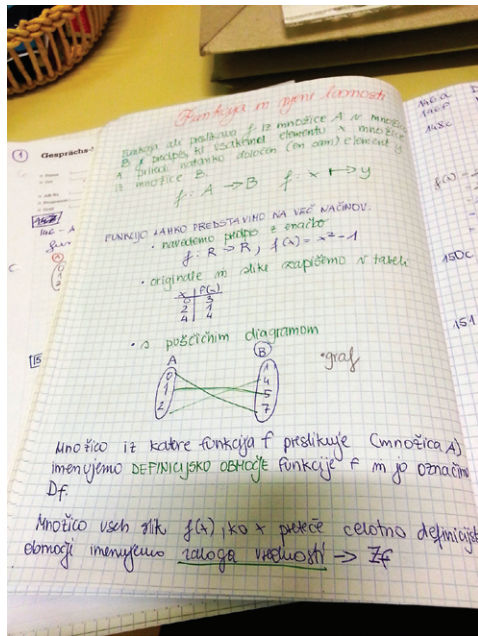 Funkcija in njene lastnosti
Funkcija ali preslikava f iz množice A v množico
B je predpis, ki vsakemu elementu x množice
A priredi natanko določen (en sam) element y
iz množice B.
f: A → B f: x ↦ y
FUNKCIJO LAHKO PREDSTAVIMO NA VEČ NAČINOV:
• navedemo predpis z enačbo
f: R → R, f(x) = x² - 1
• originale in slike zapišemo v tabeli
x f(x)
0 3
2 1
4 4
• s puščičnim diagramom
• graf
A B
0 1
1 4
2 5
7
Množico iz katere funkcija f preslikuje (množica A)
imenujemo DEFINICIJSKO OBMOČJE funkcije f in jo označimo
Df.
Množico vseh slik f(x), ko x preteče celotno definicijsk
območji imenujemo zaloga vrednosti → Zf
1 Gesprächs-
152
146 - A
C.
0
1
2
15
146a
146p
148c
f(x) =
150c
151